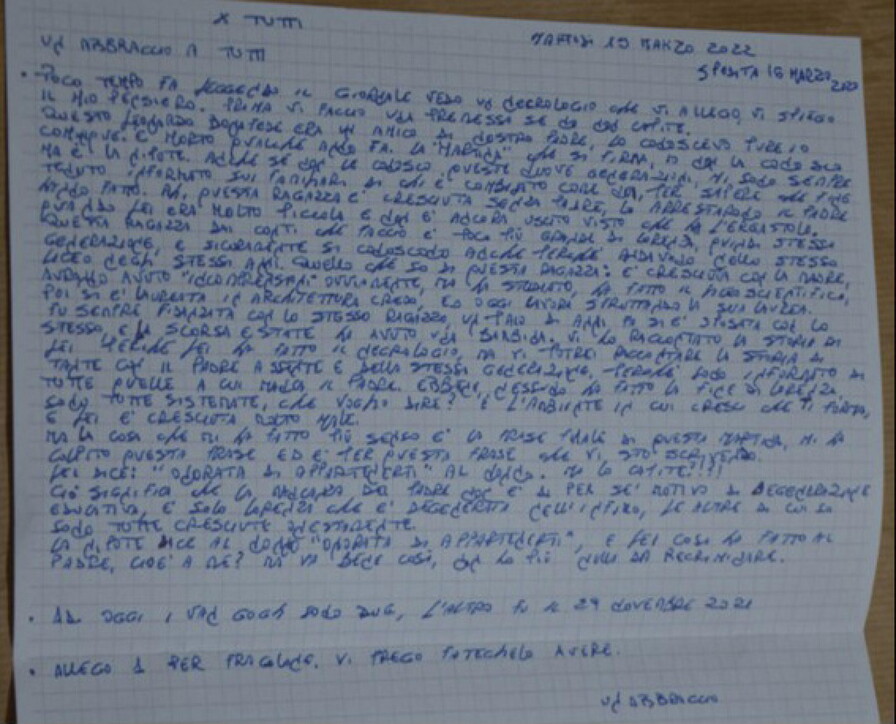 X TUTTI
MARTEDÌ 15 MARZO 2022
UN ABBRACCIO A TUTTI
SPEDITA 16 MARZO
• POCO TEMPO FA LEGGENDO IL GIORNALE VEDO UN NECROLOGIO CHE VI ALLEGO, VI SPIEGO
IL MIO PENSIERO. PRIMA VI FACCIO UNA PREMESSA SE NO NON CAPITE.
QUESTO LEONARDO ERA UN AMICO DI NOSTRO PADRE, LO CONOSCEVO PURE IO
COMUNQUE. È MORTO QUALCHE ANNO FA. LA "MARTINA" CHE SI FIRMA, IO NON LA CONOSCO
MA È LA NIPOTE. ANCHE SE NON LE CONOSCO, QUESTE NUOVE GENERAZIONI, MI SONO SEMPRE
TENUTO INFORMATO SUI FAMILIARI DI CHI È COME NOI, PER SAPERE CHE FINE
HANNO FATTO. QUESTA RAGAZZA È CRESCIUTA SENZA PADRE, LO ARRESTARONO IL PADRE
QUANDO LEI ERA MOLTO PICCOLA E NON È ANCORA USCITO VISTO CHE HA L'ERGASTOLO.
QUESTA RAGAZZA DAI CONTI CHE FACCIO È POCO PIÙ GRANDE DI LORENZA, QUINDI STESSA
GENERAZIONE, E SICURAMENTE SI CONOSCONO ANCHE PERCHÉ ANDAVANO NELLO STESSO
LICEO NEGLI STESSI ANNI. QUELLO CHE SO DI QUESTA RAGAZZA: È CRESCIUTA CON LA MADRE,
AVRANNO AVUTO OVVIAMENTE, MA HA STUDIATO, HA FATTO IL LICEO SCIENTIFICO,
POI SI È LAUREATA IN ARCHITETTURA CREDO, ED OGGI LAVORA SFRUTTANDO LA SUA LAUREA.
FU SEMPRE FIDANZATA CON LO STESSO RAGAZZO, UN PAIO DI ANNI FA SI È SPOSATA CON LO
STESSO, E LA SCORSA ESTATE HA AVUTO UNA BAMBINA. VI HO RACCONTATO LA STORIA DI
LEI PERCHÉ LEI HA FATTO IL NECROLOGIO, MA VI POTREI RACCONTARE LA STORIA DI
TANTE CON IL PADRE ASSENTE E DELLA STESSA GENERAZIONE, PERCHÉ SONO INFORMATO DI
TUTTE QUELLE A CUI MANCA IL PADRE. EBBENE, NESSUNO HA FATTO LA FINE DI LORENZA,
SONO TUTTE SISTEMATE, CHE VOGLIO DIRE? È L'AMBIENTE IN CUI CRESCI CHE TI FORMA,
E LEI È CRESCIUTA MOLTO MALE.
MA LA COSA CHE MI HA FATTO PIÙ SENSO È LA FRASE FINALE DI QUESTA MARTINA, MI HA
COLPITO QUESTA FRASE ED È PER QUESTA FRASE CHE VI STO SCRIVENDO.
LEI DICE: "ONORATA DI APPARTENERTI" AL NONNO. MA LO CAPITE?!!!
CIÒ SIGNIFICA CHE LA MANCANZA DEL PADRE NON È DI PER SÉ MOTIVO DI DEGENERAZIONE
EDUCATIVA, È SOLO LORENZA CHE È DEGENERATA NELL'INFIMO, LE ALTRE DI CUI SO
SONO TUTTE CRESCIUTE ONESTAMENTE.
LA NIPOTE DICE AL NONNO "ONORATA DI APPARTENERTI", E LEI COSA HA FATTO AL
PADRE, CIOÈ A ME? MA VA BENE COSÌ, NON HO PIÙ NULLA DA RECRIMINARE.
• AD OGGI I VAN GOGH SONO DUE, L'ALTRO FU IL 29 NOVEMBRE 2021
• ALLEGO 1 PER VI PREGO FATECHELO AVERE.
UN ABBRACCIO